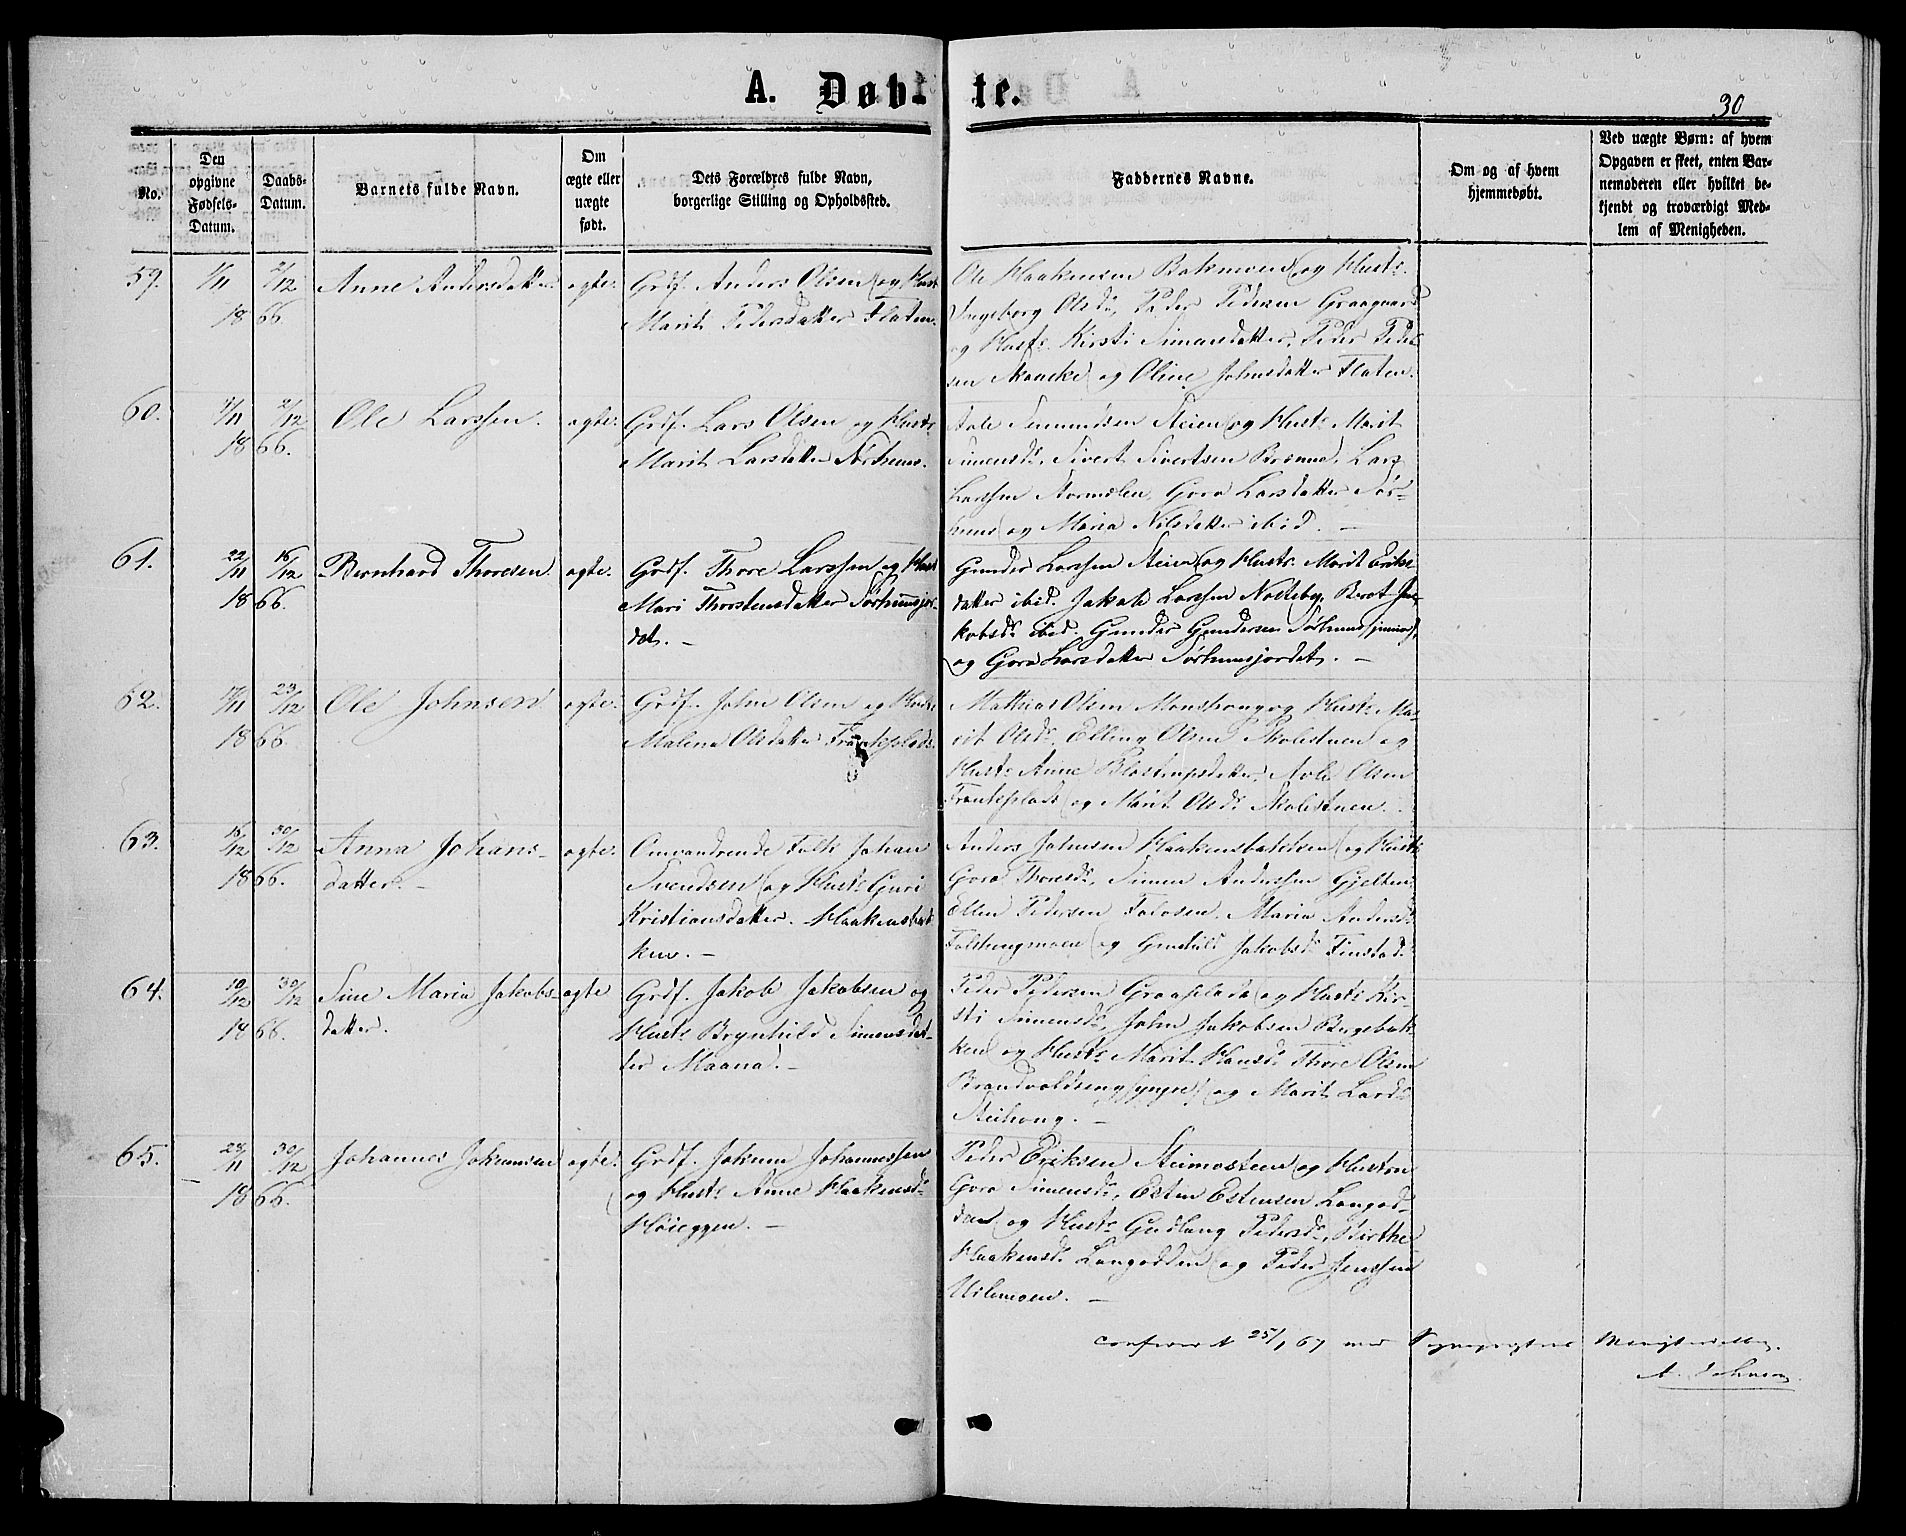 A. Døbte.
30
No.
Den opgivne Fødsels-Datum.
Daabs-Datum.
Barnets fulde Navn.
Om ægte eller uægte født.
Dets Forældres fulde Navn, borgerlige Stilling og Opholdssted.
Faddernes Navne.
Om og af hvem hjemmedøbt.
Ved uægte Børn: af hvem Opgaven er skeet, enten Barnemoderen eller hvilket bekjendt og troværdigt Medlem af Menigheden.
59. 1/11 2/12 Anne Andersdatter ægte. Grdf. Anders Olsen og Hust.
18 66. Marit Pedersdatter Flaten.
Ole Haakensen Bakmoen og Hust.
Ingeborg Olsd., Peder Pedersen Graagaard
og Hust. Kirsti Simensdatter, Peder Peder-
sen Skancke og Oline Johnsdatter Flaten.
60. 2/12 Ole Larssen. ægte. Grdf. Lars Olsen og Hust.
18 66. Marit Larsdatter Sørhuus.
Steien og Hust. Marit
Simensd. Sivert Sivertsen Brænne, Lars
Larssen Gora Larsdatter Sør-
huus og Maria Nilsdatter ibid. —
61. 22/11 16/12 Bernhard Thoresen. ægte. Grdf. Thore Larssen og Hust
18 66. Mari Thorstensdatter Sørhuusjor-
det. —
Gunder Larssen Steien og Hust. Marit Eriks-
datter ibid. Jakob Larssen Nordeby, Beret Ja-
kobsd. ibid. Gunder Gundersen Sørhuus (junior)
og Gora Larsdatter Sørhuusjordet. —
62. 17/11 23/12 Ole Johnsen ægte. Grdf. John Olsen og Hust.
18 66. Malena Olsdatter
Mathias Olsen Monshoug og Hust. Ma-
rit Olsd. Elling Olsen Skolestuen og
Hust. Anne Avle Olsen
og Marit Olsd. Skolestuen.
63. 16/12 30/12 Anna Johans- ægte. Omvandrende Folk Johan
18 66. datter. — Svendsen og Hust. Guri
Kristiansdatter. Haakensbak-
ken. —
Anders Johnsen Haakensbakken og Hust.
Gora Thoresd., Simen Anderssen Gjelten
Ellen Pedersen Folosen. Maria Andersd.
og Gunhild Jakobsd. Finstad.
64. 10/12 30/12 Sine Maria Jakobs- ægte Grdf. Jakob Jakobsen og
18 66. datter. Hust. Brynhild Simensdat-
ter Maana. —
Peder Pedersen og Hust. Kir-
sti Simensd., John Jakobsen Bergebak-
ken og Hust. Marit Hansd. Thore Olsen
Brandvoldseng (yngre) og Marit Larsd.
Steihoug. —
65. 28/11 30/12 Johannes Jokumsen ægte. Grdf. Jokum Johannessen
18 66. og Hust. Anne Haakensd.
Høieggen. —
Peder Eriksen Steimosteen og Hustru
Gora Simensd., Esten Estensen Langod-
den og Hust. Gudlaug Pedersd., Birthe
Haakensd. Langodden og Peder Jenssen
Uilsmoen. —
confereret 25/1 67 med
A. Johnsen